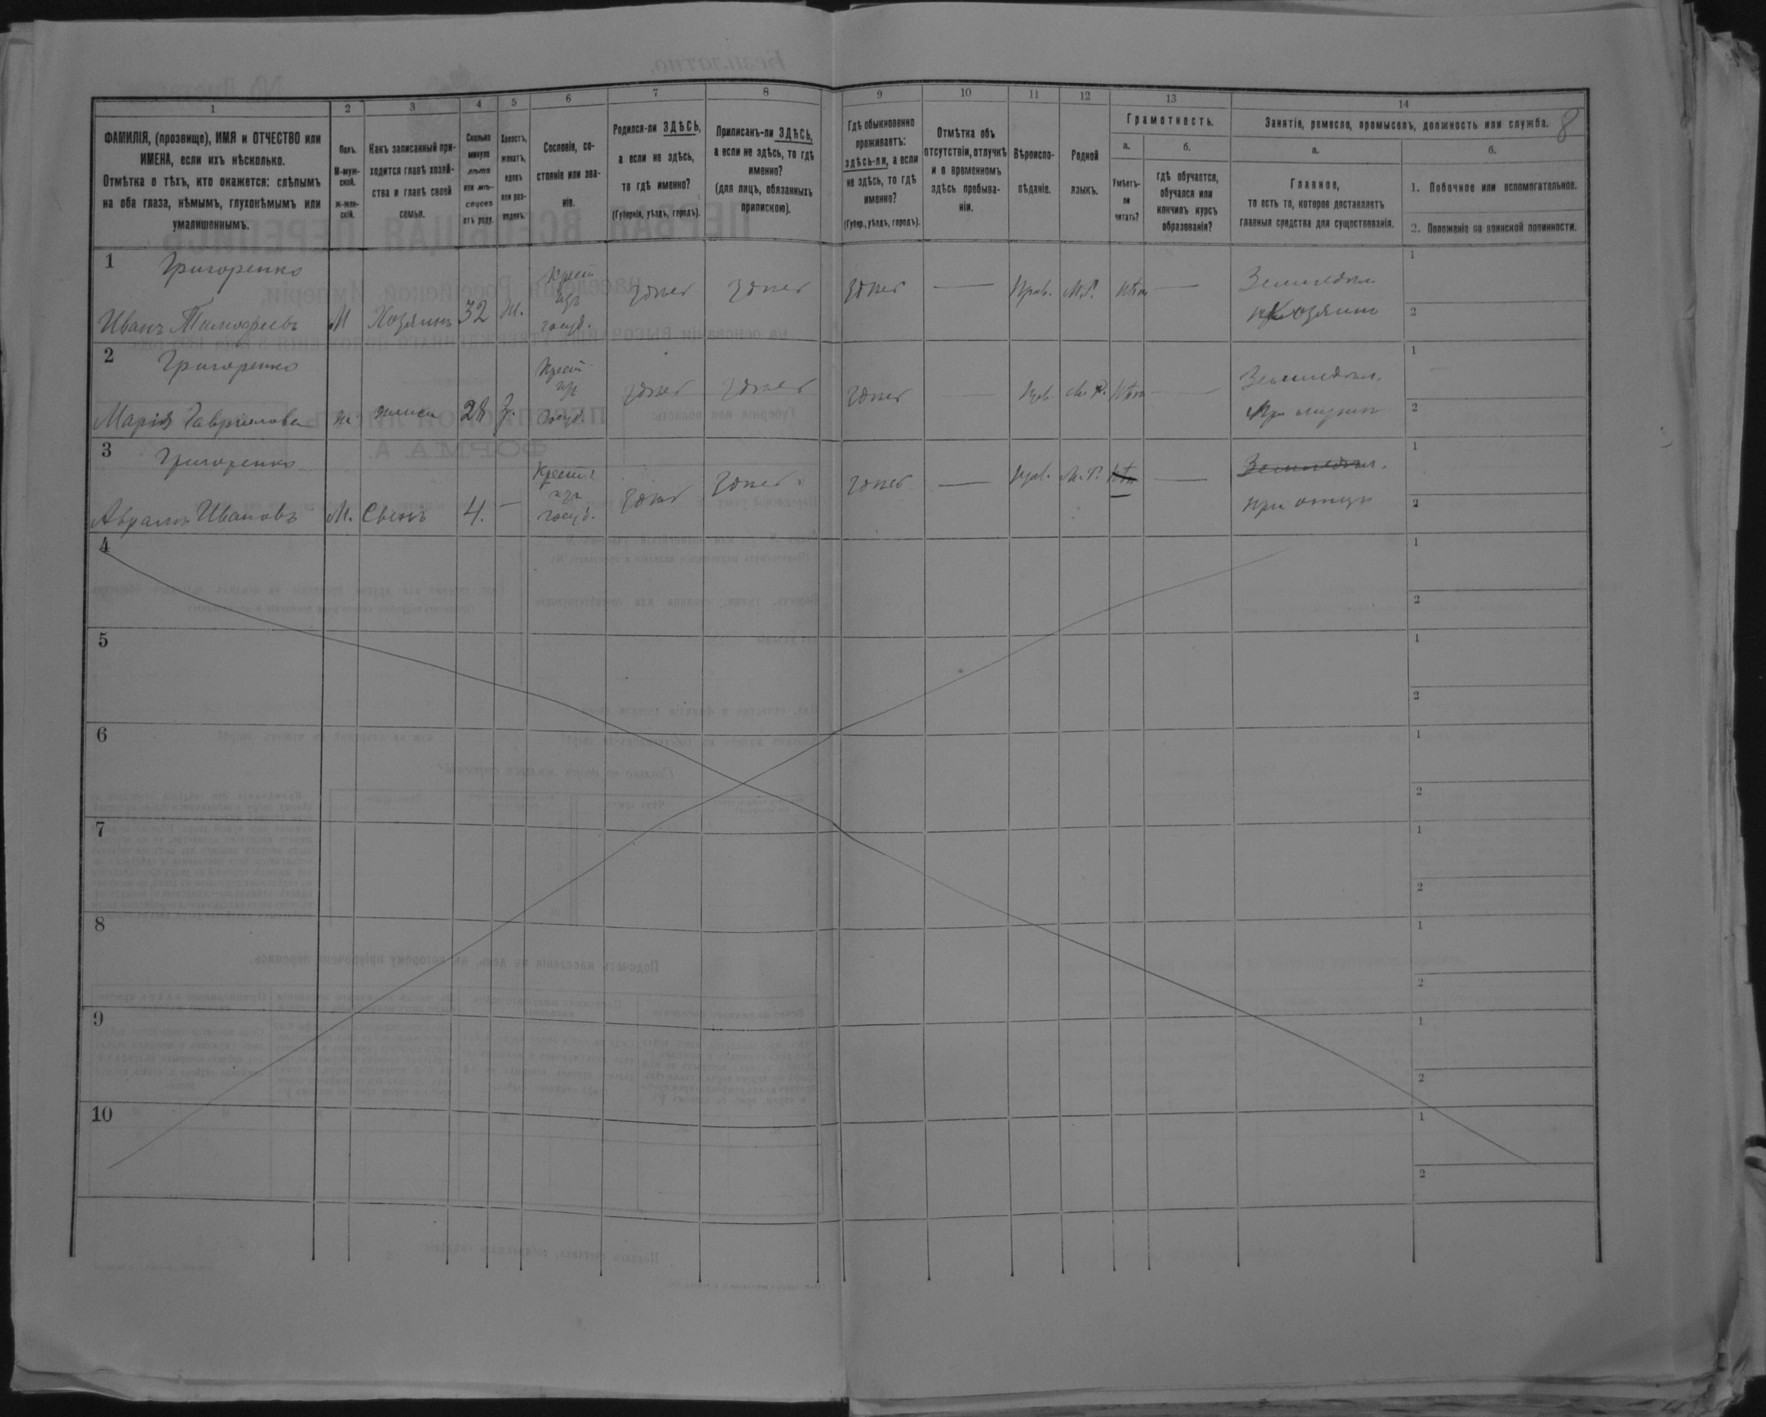 1
2
3
4
5
6
7
8
9
10
11
12
13
14
8
ФАМИЛІЯ, (прозвище), ИМЯ и ОТЧЕСТВО или
ИМЕНА, если ихъ нѣсколько.
Отмѣтка о тѣхъ, кто окажется: слѣпымъ
на оба глаза, нѣмымъ, глухонѣмымъ или
умалишоннымъ.
Полъ.
М-муж-
ской.
Ж-жен-
скій.
Какъ записанный при-
ходится главѣ хозяй-
ства и главѣ своей
семьи.
Сколько
минуло
лѣтъ
или мѣ-
сяцевъ
отъ роду.
Холостъ,
женатъ,
вдовъ
или раз-
веденъ.
Сословіе, со-
стояніе или зва-
ніе.
Родился-ли ЗДѢСЬ,
а если не здѣсь,
то гдѣ именно?
(Губернія, уѣздъ, городъ).
Приписанъ-ли ЗДѢСЬ,
а если не здѣсь, то гдѣ
именно?
(для лицъ, обязанныхъ
припискою).
Гдѣ обыкновенно
проживаетъ:
здѣсь-ли, а если
не здѣсь, то гдѣ
именно?
(Губер., уѣздъ, городъ).
Отмѣтка объ
отсутствіи, отлучкѣ
и о временномъ
здѣсь пребыва-
ніи.
Вѣроиспо-
вѣданіе.
Родной
языкъ.
Грамотность.
а.
Умѣетъ-
ли
читать?
б.
гдѣ обучается,
обучался или
кончилъ курсъ
образованія?
Занятіе, ремесло, промыселъ, должность или служба.
а.
Главное,
то есть то, которое доставляетъ
главныя средства для существованія.
б.
1. Побочное или вспомогательное.
2. Положеніе по воинской повинности.
1 Григоренко
Иванъ Тимофеевъ М Хозяинъ 32 Ж. Крест. изъ госуд. здесь здесь здесь — Прав. М.Р. нѣтъ — Земледѣл. Хозяинъ
1
2
2 Григоренко
Марія Гавриилова ж жена 28 З. Крест. изъ госуд. здесь здесь здесь — Прав. М.Р. нѣтъ — Земледѣл. при мужѣ
1
2
3 Григоренко
Аврамъ Ивановъ М. Сынъ 4. — Крест. изъ госуд. здесь здесь здесь — Прав. М.Р. нѣтъ — Земледѣл. при отцѣ
1
2
4
1
2
5
1
2
6
1
2
7
1
2
8
1
2
9
1
2
10
1
2